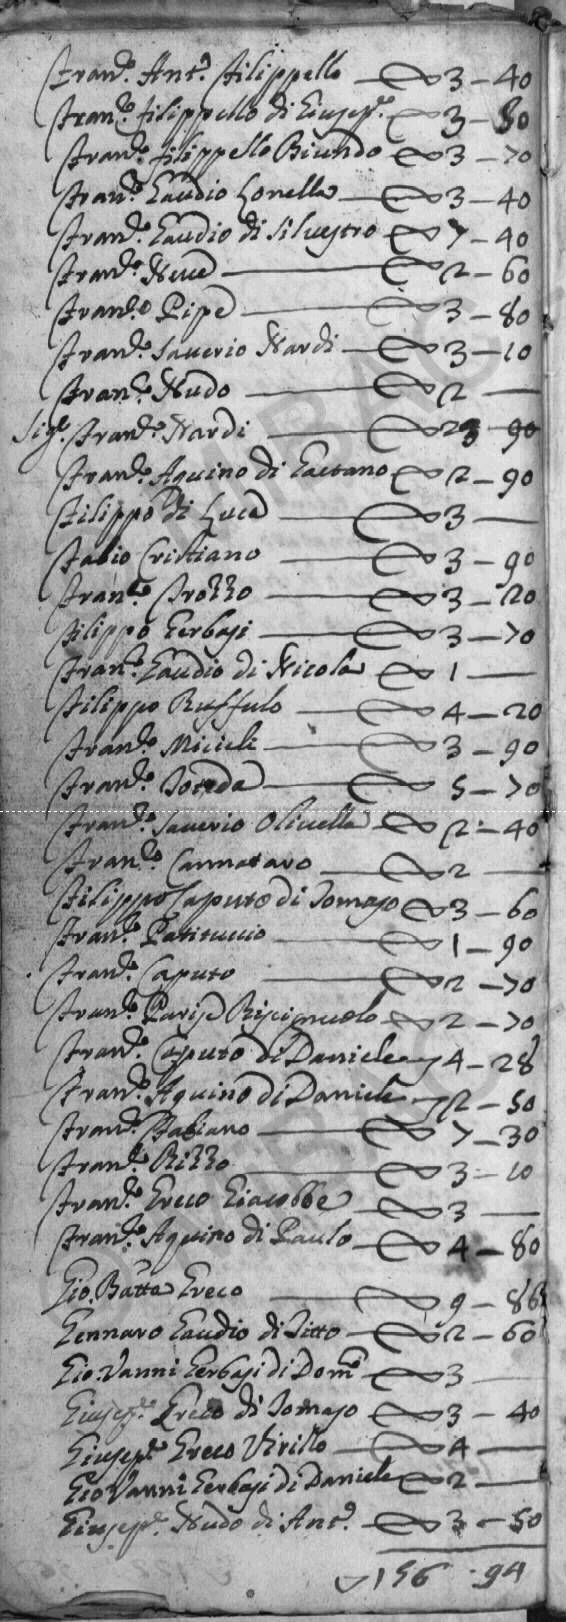 Fran.co Ant.o Filippello 3 – 40
Fran.co Filippello di Giusep.e 3 – 50
Fran.co Filippello Biundo 3 – 70
Fran.co Gaudio Lonella 3 – 40
Fran.co Gaudio di Silvestro 7 – 40
Fran.co Neve 2 – 60
Fran.co Pipe 3 – 80
Fran.co Saverio Nardi 3 – 10
Fran.co Nudo 2 —
Sig.e Fran.co Nardi 23 90
Fran.co Aquino di Gaetano 2 – 90
Filippo di Luca 3 —
Fabio Cristiano 3 – 90
Fran.co Frozzo 3 – 20
Filippo Gerbasi 3 – 70
Fran.co Gaudio di Nicola 1 —
Filippo Ruffulo 4 – 20
Fran.co Miceli 3 – 90
Fran.co 5 – 70
Fran.co Saverio Olivella 2 – 40
Fran.co Cannataro 2 —
Filippo Caputo di Tomaso 3 – 60
Fran.co Patituccio 1 – 90
Fran.co Caputo 2 – 70
Fran.co Parise 2 – 70
Fran.co Caputo di Daniele 4 – 28
Fran.co Aquino di Daniele 2 – 50
Fran.co Fabiano 7 – 30
Fran.co Rizzo 3 – 10
Fran.co Greco Giacobbe 3 —
Fran.co Aquino di Paulo 4 – 80
Gio. Batta Greco 9 – 86
Gennaro Gaudio di Titto 2 – 60
Gio:Vanni Gerbasi di Dom.co 3 —
Giusep.e Greco di Tomaso 3 – 40
Giusep.e Greco Virillo 4 —
Gio:Vanni Gerbasi di Daniele 2 —
Giusep.e Nudo di Ant.o 3 – 50
156 - 94
MiBAC
MiBAC